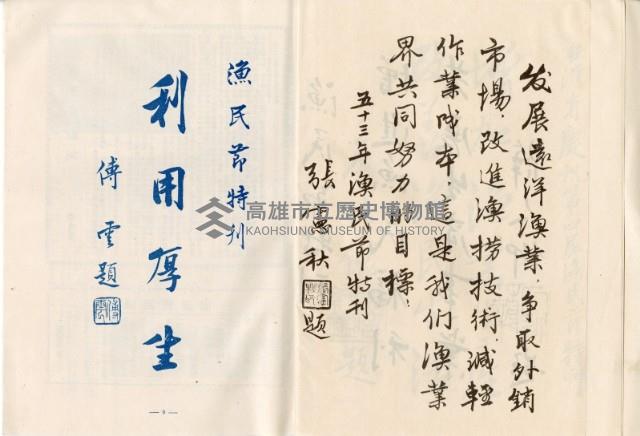 发展遠洋漁業，争取外銷
市場，改進漁撈技術，減輕
作業成本，這是我们漁業
界共同努力的目標。
五十三年漁民節特刊
張憲秋題
漁民節特刊
利用厚生
傅雲題
高雄市立歷史博物館
KAOHSIUNG MUSEUM OF HISTORY
— 9 —